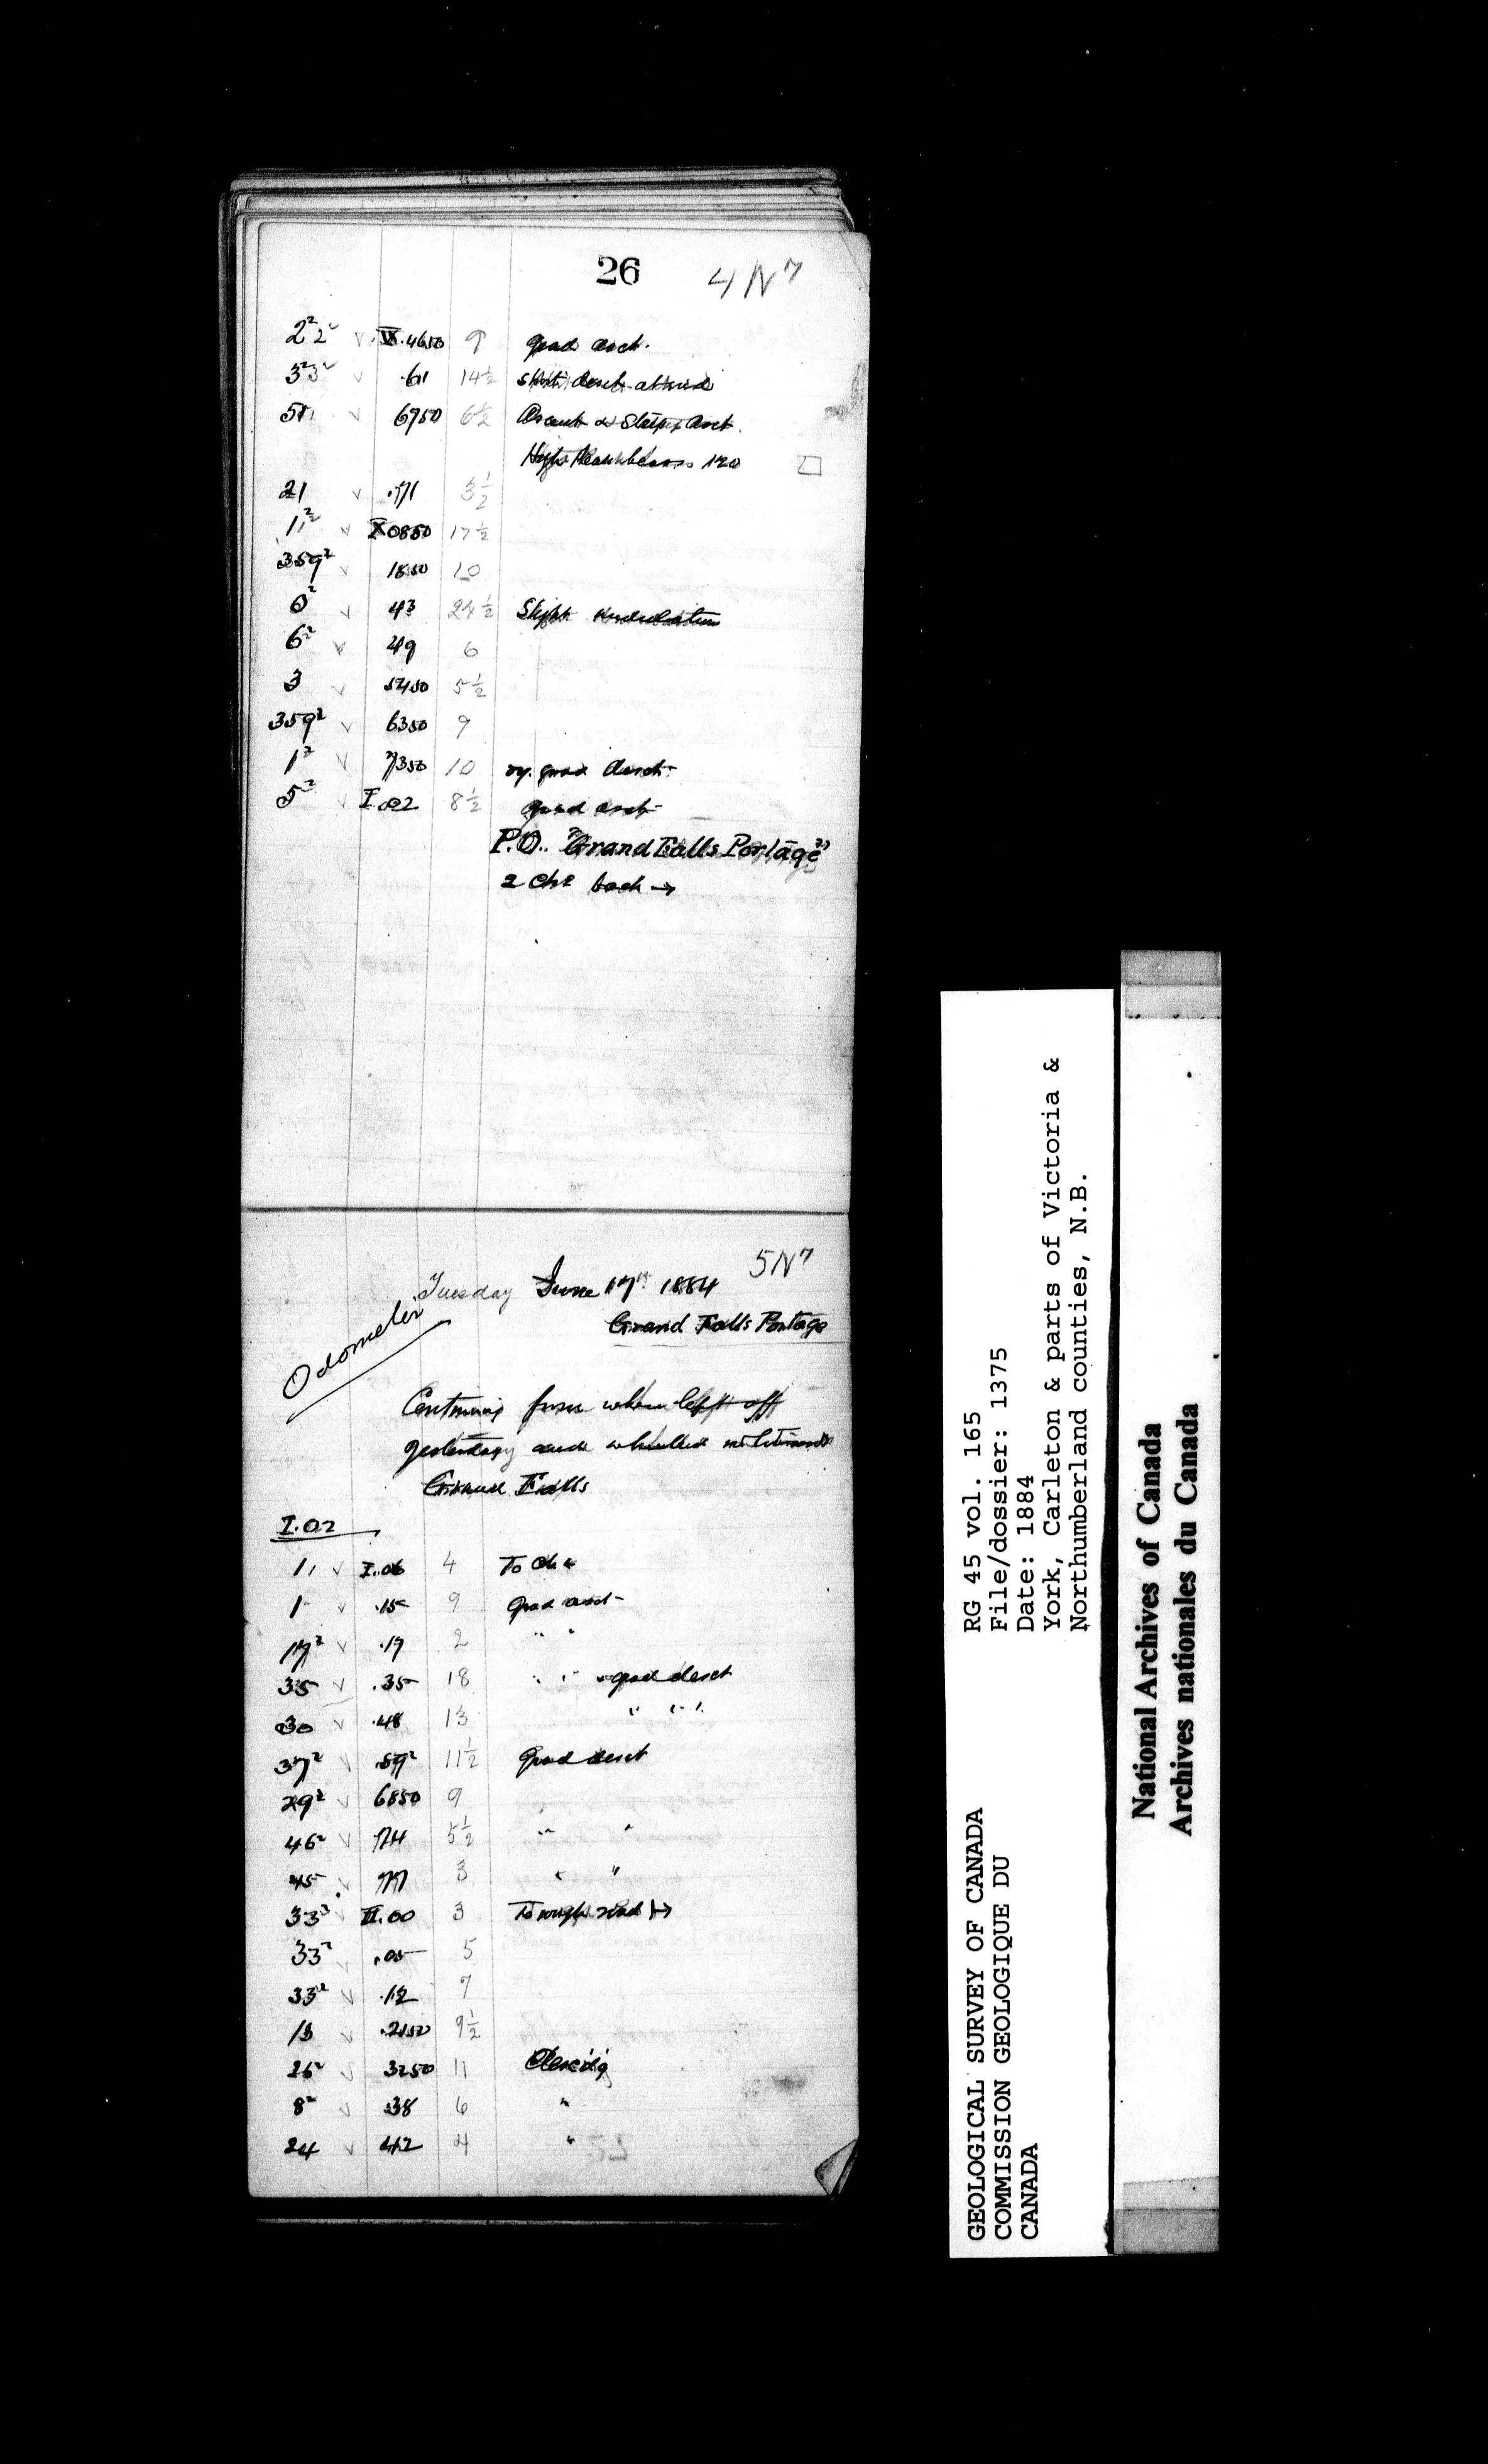 26 4 N 7
2² 2 ✓ IX.4650 9 grad asct.
3² 3 ✓ .61 14½ short desct.
51 ✓ 6750 6½ Ascent & Steeper asct.
120
21 ✓ .71 3½
1² ✓ X0850 17½
359² ✓ 1850 10
0² ✓ 43 24½ Slight undulation
6² ✓ 49 6
3 ✓ 5450 5½
359² ✓ 6350 9
1² ✓ 7350 10 vy. grad desct.
5² ✓ I.02 8½ grad asct
P.O. "Grand Falls Portage"
2 chs back →
5 N 7
Tuesday June 17th 1884
Grand Falls Portage
Odometer
Continuing from where left off
yesterday and wheeled
Grand Falls
I.02
1, ✓ I.06 4 To
1 ✓ .15 9 Grad asct
17² ✓ .17 2 " "
35 ✓ .35 18 " " grad desct
30 ✓ .48 13 " " "
37² ✓ .59² 11½ Grad desct
29² ✓ 6850 9
46² ✓ 74 5½ " "
45 ✓ 77 3 " "
33² ✓ II.00 3 To rough road
33² ✓ .05 5
33² ✓ .12 7
13 ✓ .2150 9½
26² ✓ 3250 11
8² ✓ .38 6 "
24 ✓ 42 4 "
GEOLOGICAL SURVEY OF CANADA
COMMISSION GEOLOGIQUE DU
CANADA
RG 45 vol. 165
File/dossier: 1375
Date: 1884
York, Carleton & parts of Victoria &
Northumberland counties, N.B.
National Archives of Canada
Archives nationales du Canada